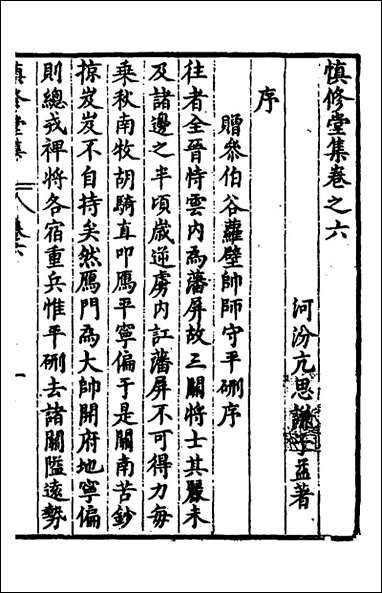 慎修堂集卷之六
河汾亢思謙子益著
序
贈叅伯谷蘿壁帥師守平刪序
往者全晉恃雲内為藩屏故三關將士其嚴未
及諸邊之半頃歲逆虜内訌藩屏不可得力每
乗秋南牧胡騎直叩鴈平寧偏于是關南苦鈔
掠岌岌不自持矣然鴈門為大帥開府地寧偏
則總戎裨將各宿重兵惟平刪去諸關隘遠勢